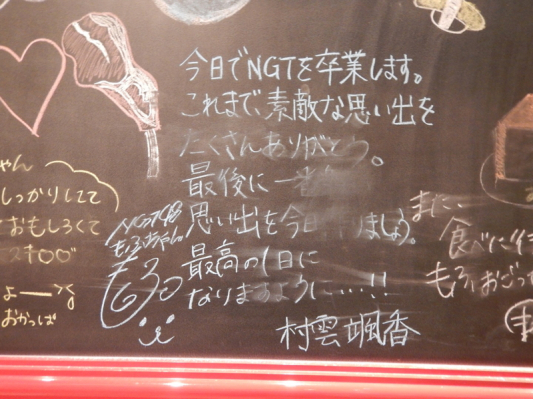 今日でNGTを卒業します。
これまで、素敵な思い出を
たくさんありがとう。
最後に一
思い出を今日 ましょう。
最高の1日に
なりますように…!!
村雲颯香
NGT48
もふちゃん
もふ
ゃん
しっかりしてて
おもしろくて
おかっぱ
また、
食べに行
もふ おごっ